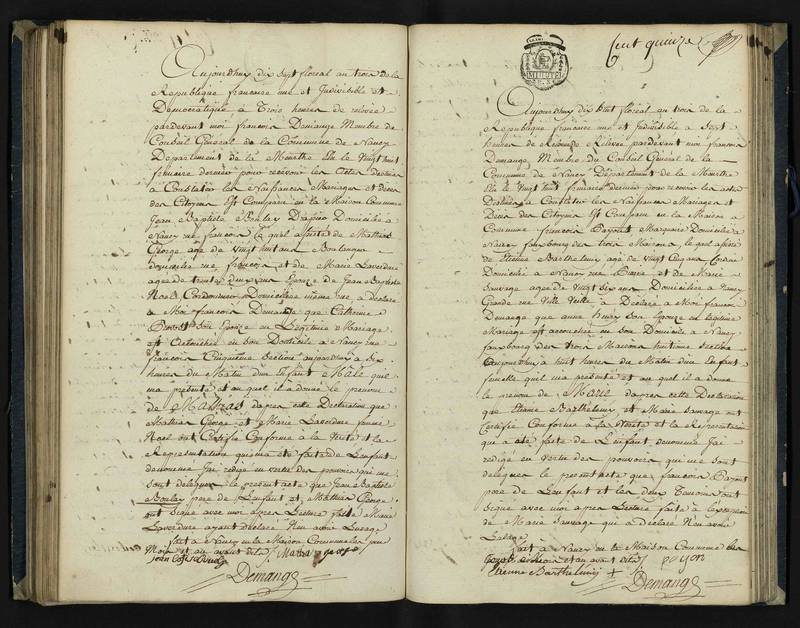 Aujourdhuy dix Sept floreal an trois de la
Republique francaise une et Indivisible et
Democratique a Trois heures de relevée
pardevant moi francois Demange Membre du
Conseil General de la Commune de Nancy
Departement de la Meurthe Elu le Vingt huit
frimaire dernier pour recevoir les Actes destinés
a Constater les Naissances Mariages et deces
des Citoyens Est Comparu en la Maison Commune
Jean Baptiste Boulay Drapier Domicilié a
Nancy rue francois lequel assisté de Mathias
George agé de vingt huit ans Boulanger
domicilié rue francois et de Marie Laverdure
agée de trente deux ans Epouse de Jean Baptiste
Noel Cordonnier Domiciliée même rue a declaré
a Moi francois Demange que Catherine
son Epouse en Légitime Mariage
est accouchée en son Domicile a Nancy rue
francois Cinquieme Section aujourdhuy a Six
heures du Matin d'un Enfant Male quil
ma présenté et au quel il a donné le prenom
de Mathias dapres cette Declaration que
Mathias George et Marie Laverdure femme
Noel ont Certifié Conforme a la Verité et la
Representation qui ma été faite de Lenfant
denommé Jai redigé en vertu des pouvoirs qui me
sont delegués le present acte que Jean Baptiste
Boulay pere de Lenfant et Mathias George
ont Signé avec moi apres Lecture faite Marie
Laverdure ayant declaré N'en avoir Lusage
fait a Nancy en la Maison Commune les jour
Mois et an avant dits
Demange
Cent quinze
Aujourdhuy dix Sept floreal an trois de la
Republique francaise une et Indivisible a Sept
heures de Relevée pardevant moi francois
Demange Membre du Conseil Général de la
Commune de Nancy Département de la Meurthe
Elu le Vingt huit frimaire dernier pour recevoir les actes
Destinés a Constater les Naissances Mariages et
Décès des Citoyens Est Comparu en la Maison
Commune francois Domicilié a
Nancy fauxbourg des trois Maisons, lequel assisté
de Etienne Barthelemy agé de vingt Cinq ans
Domicilié a Nancy rue et de Marie
Sauvage agée de Vingt Six ans Domiciliée a Nancy
Grande rue Ville Vieille a Déclaré a Moi francois
Demange que anne henry Son Epouse en Légitime
Mariage est accouchée en son Domicile a Nancy
fauxbourg des trois Maisons huitieme Section
aujourdhuy a huit heures du Matin d'un Enfant
femelle quil ma présenté et au quel il a donné
le prenom de Marie dapres cette Déclaration
que Etienne Barthelemy et Marie Sauvage ont
Certifié Conforme a la Verité et la Representation
qui a été faite de Lenfant denommé Jai
redigé en Vertu des pouvoirs qui me sont
delegués le present acte que francois
pere de Lenfant et les deux Temoins sont
Signé avec moi apres Lecture faite a l'exception
de Marie Sauvage qui a Déclaré N'en avoir
Lusage
fait a Nancy en la Maison Commune les
jour mois et an avant dits
Etienne Barthelemy
Demange